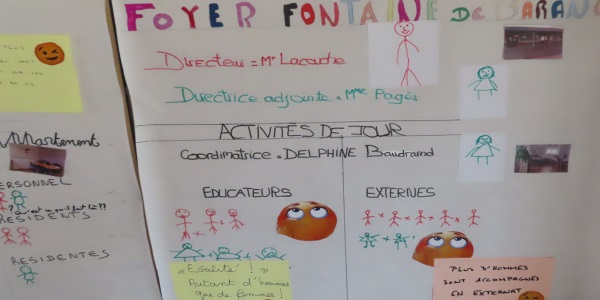 FOYER FONTAINE DE BARANC
Directeur = Mr Lacouche
Directrice adjointe = Mme Pagès
ACTIVITÉS DE JOUR
Coordinatrice = DELPHINE Baudrand
EDUCATEURS
EXTERNES
« Egalité ! »
Autant d'hommes
que de femmes !
PLUS D'HOMMES
SONT ACCOMPAGNÉS
EN EXTERNAT
PLUS
Appartement
PERSONNEL
RESIDENTS
RESIDENTES